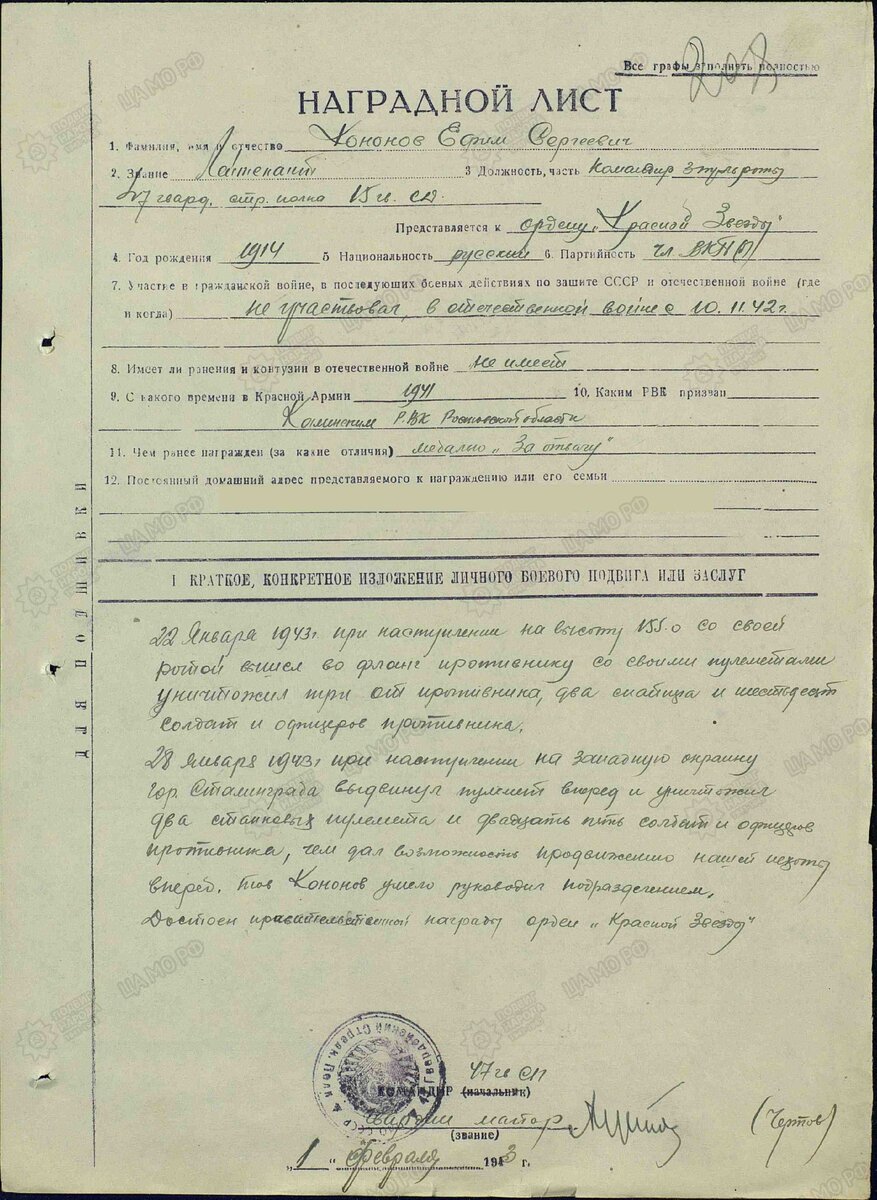 Все графы заполнять полностью
208
НАГРАДНОЙ ЛИСТ
1. Фамилия, имя и отчество Кононов Ефим Сергеевич
2. Звание Лейтенант 3 Должность, часть Командир роты
47 гвард. стр. полка 15 гв. СД.
Представляется к ордену „Красной Звезды"
4. Год рождения 1914 5 Национальность русский 6. Партийность чл. ВКП(б)
7. Участие в гражданской войне, в последующих боевых действиях по защите СССР и отечественной войне (где
и когда) не участвовал, в отечественной войне с 10.11.42 г.
8. Имеет ли ранения и контузии в отечественной войне не имеет
9. С какого времени в Красной Армии 1941 10. Каким РВК призван
Каменским РВК Ростовской области
11. Чем ранее награжден (за какие отличия) медалью „За отвагу"
12. Постоянный домашний адрес представляемого к награждению или его семьи
ДЛЯ ПОДШИВКИ
I КРАТКОЕ, КОНКРЕТНОЕ ИЗЛОЖЕНИЕ ЛИЧНОГО БОЕВОГО ПОДВИГА ИЛИ ЗАСЛУГ
22 Января 1943г. при наступлении на высоту 155.0 со своей
ротой вышел во фланг противнику со своими пулеметами
уничтожил три от противника, два и шестьдесят
солдат и офицеров противника.
28 января 1943г при наступлении на западную окраину
гор. Сталинграда выдвинул пулемет вперед и уничтожил
два станковых пулемета и двадцать пять солдат и офицеров
противника, чем дал возможность продвижению нашей пехоты
вперед. тов Кононов умело руководил подразделением,
Достоен правительственной награды орден „Красной Звезды"
47 гв СП
КОМАНДИР (начальник)
гвардии майор (Чертов)
(звание)
„1" Февраля 1943 г.
ЦАМО РФ